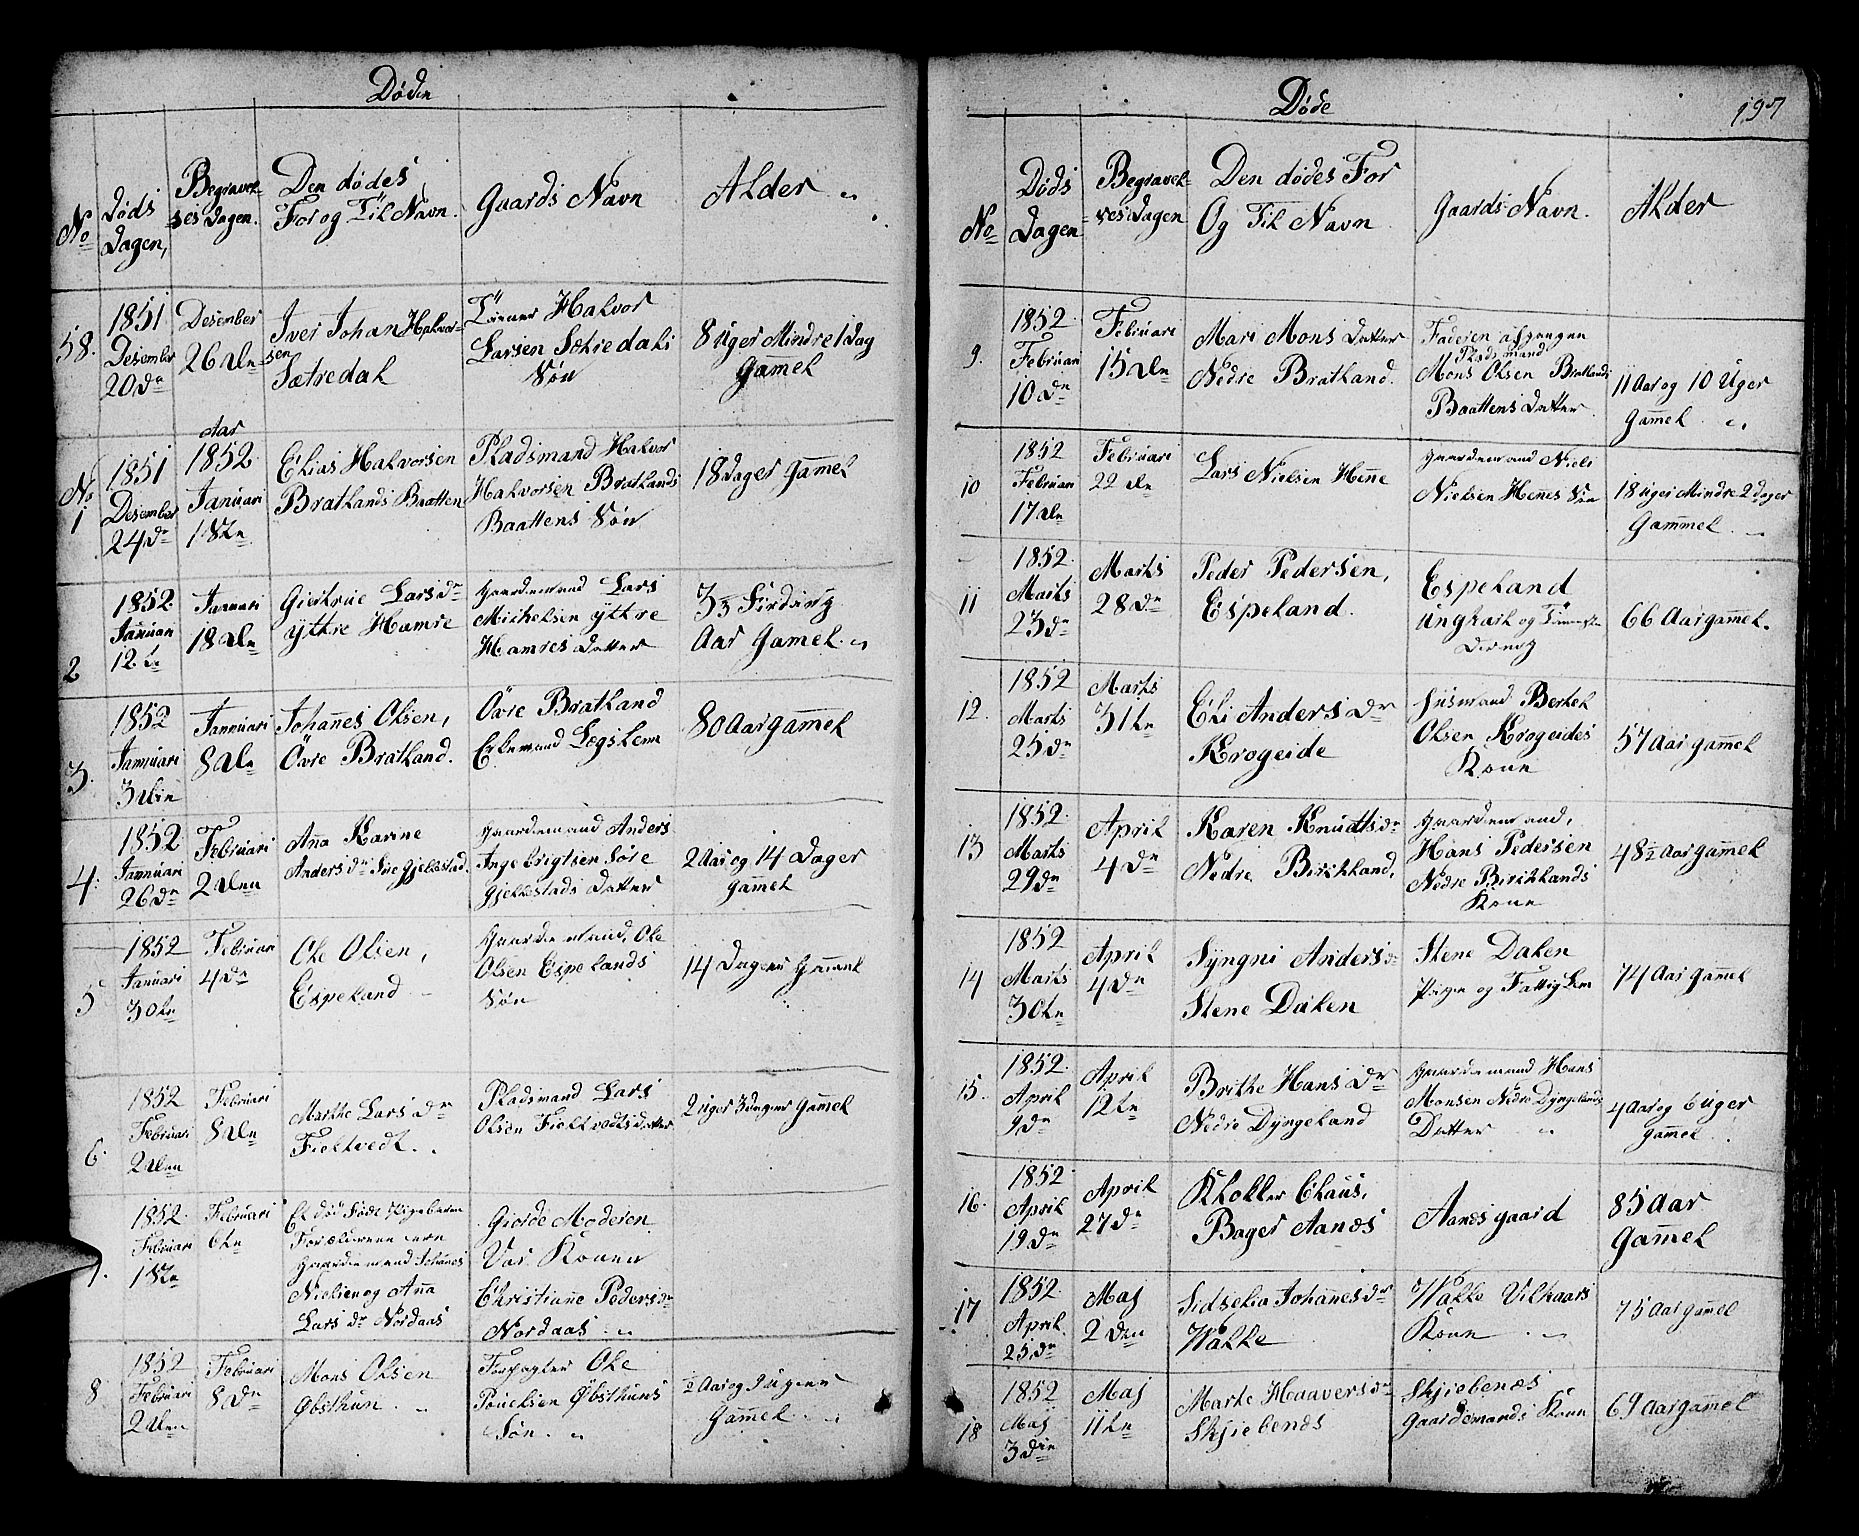 Døde
No
Døds
Dagen,
Begravel-
ses Dagen.
Den dødes
For og Til Navn.
Gaards Navn
Alder
58.
1851
Desember
20de
Desember
26 den
Iver Johan Halvor-
sen
Sætredal
Halvor
Larsen Sætredals
Søn
8 Uger Mindre 1 Dag
Gamel
No
1
1851
Desember
24de
Aar
1852.
Januari
1ste
Elias Halvorsen
Bratlands Baatten
Pladsmand Halvor
Halvorsen Bratlands
Baattens Søn
18 Dager Gamel
2
1852.
Januari
12.te
Januari
18 den
Giertrue Larsdr
yttre Hamre
Gaardemand Lars
Mickelsen yttre
Hamres Datter
3 1/3 Firding
Aar Gamel.
3.
1852
Januari
3 die
Januari
8 den
Johannes Olsen,
Övre Bratland.
Övre Bratland
Enkemand Lægslem
80 Aar gammel
4.
1852.
Januari
26 de
Februari
2 den
Anna Karine
Andersdr Søre Gjellestad.
Gaardemand Anders
Ingebrigtsen Søre
Gjellestads Datter
2 Aar og 14 Dager
gammel
5
1852
Januari
30te
Februari
4de
Ole Olsen,
Espeland
Gaardemand, Ole
Olsen Espelands
Søn
14 Dager Gammel
6.
1852
Februari
2 den
Februari
8 den
Marthe Larsdr
Fieltvedt.
Pladsmand Lars
Olsen Fieltvedts datter
2 uger 3 dager Gammel
7.
1852.
Februari
1ste
Februari
6te
Et død Født Pigebarn
Forældrene ere
Gaardemand Johanes
Nielsen og Anna
Larsdr Nordaas
Giorde Moderen
Var Konen
Christiane Pedersdr
Nordaas
8
1852
Februari
2 den
Februari
8 de
Mons Olsen
Øbsthun.
Forpagter Ole
Poulsen Øbsthuns
Søn.
1/2 Aar og 3 ugers
Gammel.
Døde
197
No
Døds
Dagen
Begravel-
ses Dagen
Den dødes For
Og Til Navn
Gaards Navn.
Alder
9.
1852.
Februari
10 de
Februari
15 den
Mari Mons Datter
Nedre Bratland.
Faderen afgangen
Pladsmand
Mons Olsen Bratlands
Baattens Datter.
11 Aar og 10 Uger
Gammel.
10
1852
Februari
17 den
Februari
22 de
Lars Nielsen Henne
Gaardemand Niels
Nielsen Henes Søn
18 uger Mindre 2 dager
Gammel.
11
1852.
Marts
23 de
Marts
28 de
Peder Pedersen,
Espeland.
Espeland
ungkarl og
66 Aar gammel.
12.
1852
Marts
25 de
Marts
31te
Eli Andersdr
Krogeide
Husmand Berkel
Olsen Krogeides
Kone
57 Aar gammel
13
1852.
Marts
29 de
April
4 de
Karen Knudtsdr
Nedre Birchland,
Gaardemand,
Hans Pedersen
Nedre Birchlands
Kone
48 1/2 Aar gammel
14
1852
Marts
30te
April
4 de
Syngni Andersdr
Stene Dalen
Stene Dalen
Pige og Fattig Lem
74 Aar Gammel
15.
1852.
April
9de
April
12te
Brithe Hansdr
Nedre Dyngeland
Gaardemand Hans
Monsen Nedre Dyngelands
Datter
4 Aar og 6 uger
gammel.
16.
1852.
April
19 de
April
27 de
Klokker Claus,
Bager Aanæs
Aanæs gaard
85 Aar
Gammel
17
1852.
April.
25.de
Maj
2 den
Sidselia Johannesdr
Walle
Walle Vilkaars
Kone
75 Aar gammel
18
1852
Maj
3 die
Maj
11te
Marte Haaversdr
Skjiebenæs
Skjiebenæs
Gaardemands Kone
69 Aar gammel